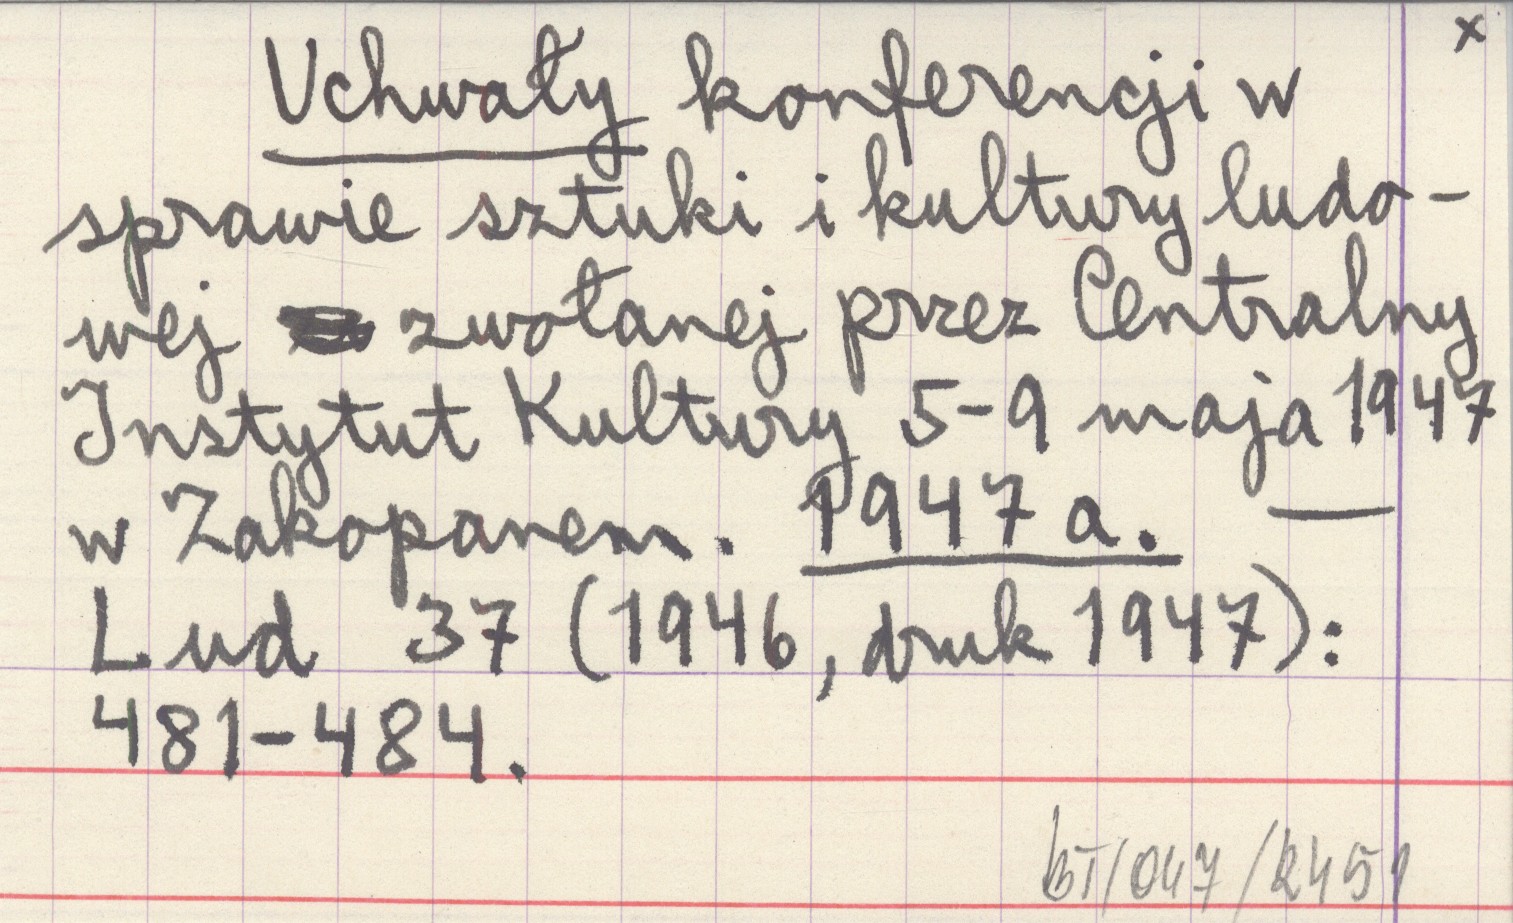 x
Uchwały konferencji w
sprawie sztuki i kultury ludo-
wej zwołanej przez Centralny
Instytut Kultury 5-9 maja 1947
w Zakopanem. 1947 a.
Lud 37 (1946, druk 1947):
481-484.
BT/047/2451